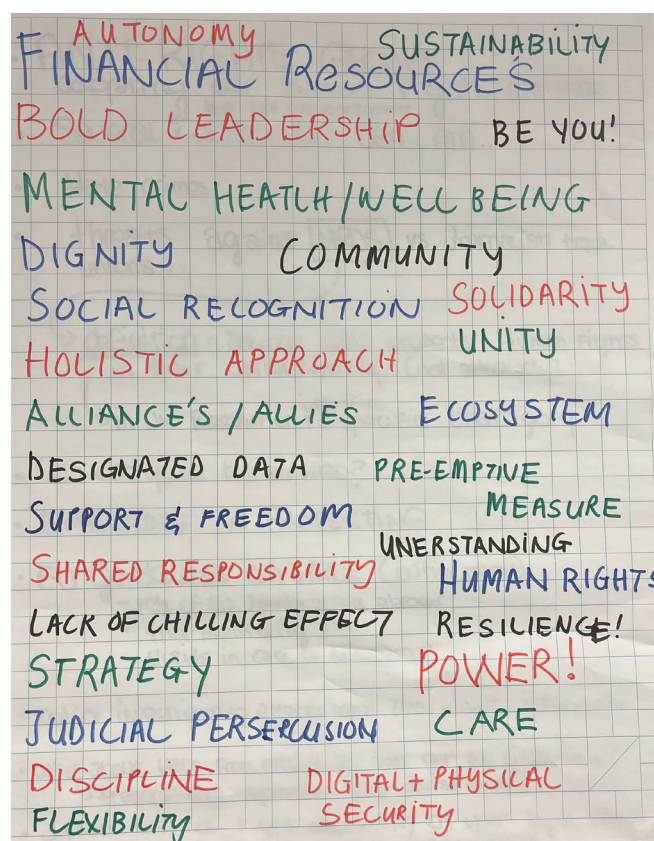 AUTONOMY
SUSTAINABILITY
FINANCIAL RESOURCES
BOLD LEADERSHIP
BE YOU!
MENTAL HEATLH/WELL BEING
DIGNITY
COMMUNITY
SOCIAL RECOGNITION
SOLIDARITY
UNITY
HOLISTIC APPROACH
ALLIANCE'S / ALLIES
ECOSYSTEM
DESIGNATED DATA
PRE-EMPTIVE
MEASURE
SUPPORT & FREEDOM
UNERSTANDING
SHARED RESPONSIBILITY
HUMAN RIGHTS
LACK OF CHILLING EFFECT
RESILIENCE!
STRATEGY
POWER!
JUDICIAL PERSERCUSION
CARE
DISCIPLINE
DIGITAL + PHYSICAL
SECURITY
FLEXIBILITY